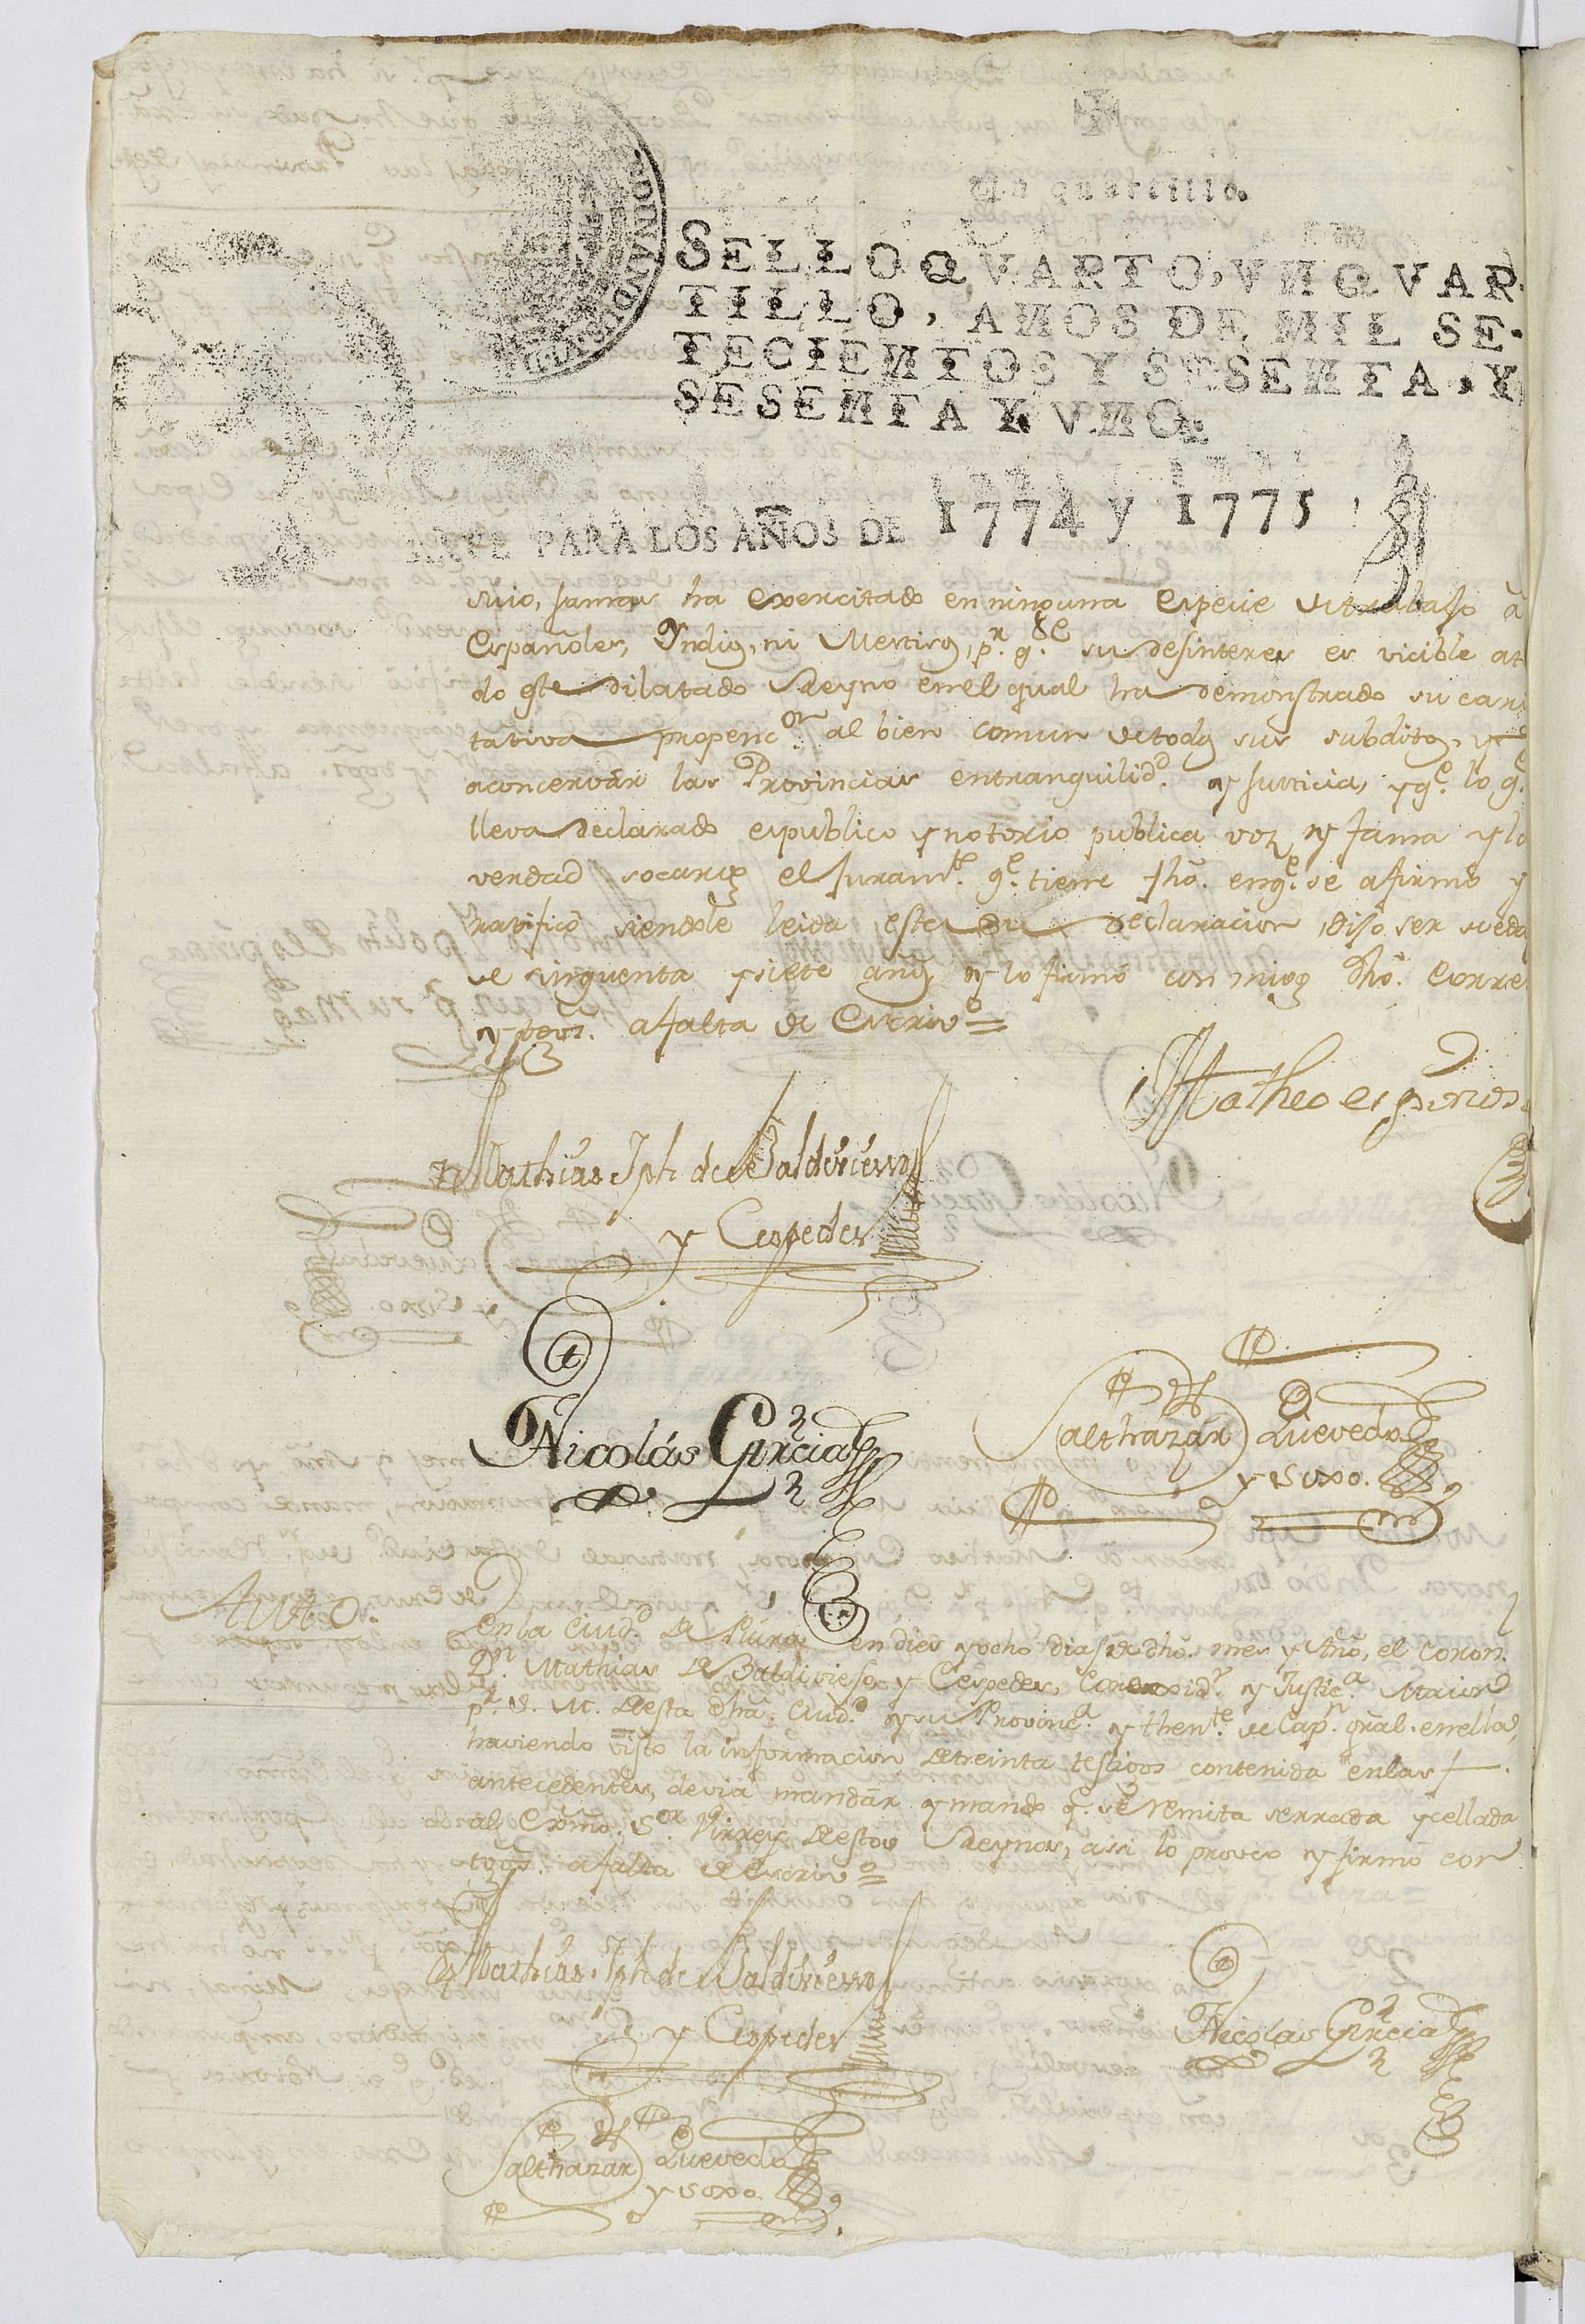 Un quartillo.
SELLO QVARTO, VN QVAR-
TILLO, AÑOS DE MIL SE-
TECIENTOS Y SESENTA, Y
SESENTA Y VNO.
PARA LOS AÑOS DE 1774 y 1775
suio, Jamas ha exercitado en ninguna especie de trabajo â
Españoles, Yndios, ni Mestizos, pr. qe. su desinteres es vicible at
do este dilatado Reyno en el qual ha demonstrado su cari
tativa propencon. al bien comun de todos sus subditos, y
aconcervàr las Provincias entranquilidd. y Justicia, y qe. lo q.
lleva declarado es publico y notorio publica voz y fama y la
verdad socargo el Juramto. qe. tiene fho. en qe. se afirmó y
ratificó siendole leida esta su declaracion, dijo ser su eda
de cinquenta y siete años y lo firmó con migo dho. Corre
y tgos. afalta de Escrivo. =
Matheo espinosa
Mathias Jph. de Baldivieso
y Cespedes
Nicolás Garcia
Balthazàr Quevedo
y Suxo.
Auto.
En la Ciudd. de Piura en dies y ocho dias de dho. mes y Año, el Coron.
Dn. Mathias de Baldivieso y Cespedes, Correxidr. y Justica. Maior
pr. S. M. desta dha. Ciudd. y su Provinca. y thente. de Capn. gral. en ella,
haviendo visto la informacion de treinta testigos contenida en las f
antecedentes, devia mandàr y mandó qe. se remita serrada y cellada
al Exmo. Sor. Virrey de estos Reynos, assi lo proveo y firmó con
tgos. afalta de Escrivo. =
Mathias Jph. de Baldivieso
y Cespedes
Nicolas Garcia
Balthazar Quevedo
y Suxo